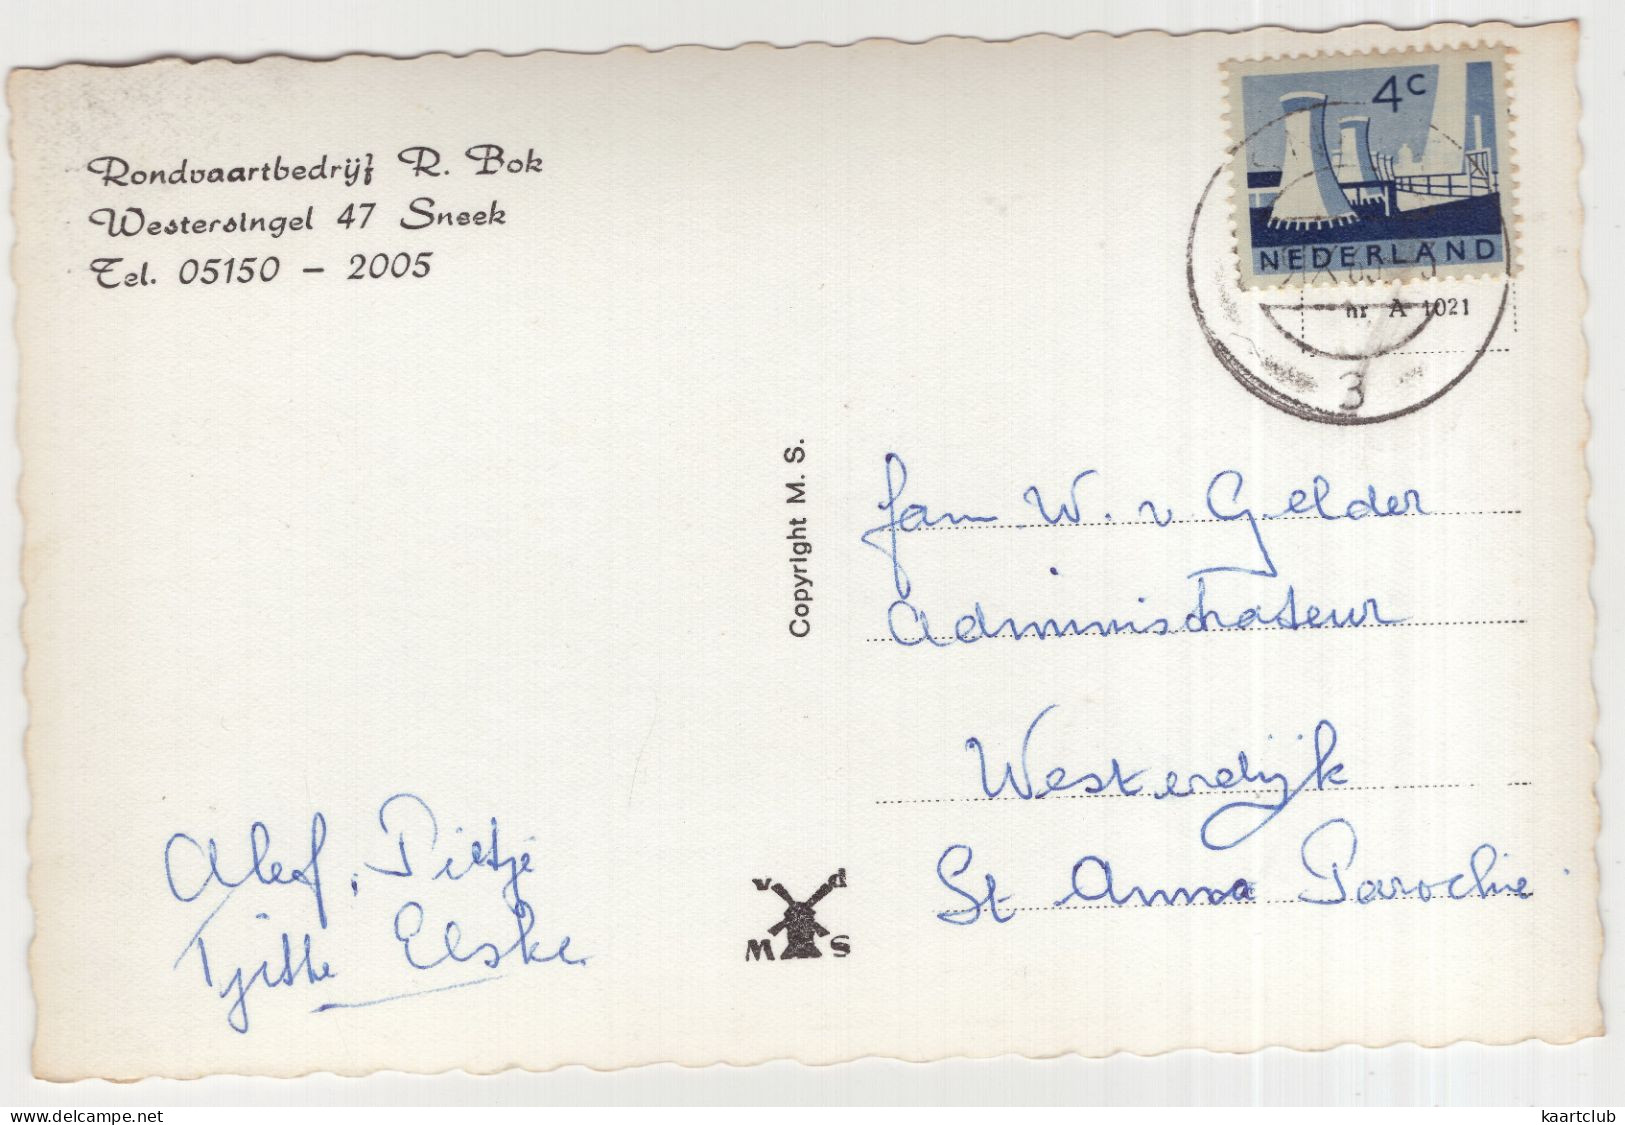 Rondvaartbedrijf R. Bok
Westersingel 47 Sneek
Tel. 05150 - 2005
4c
NEDERLAND
nr A 1021
3
Copyright M. S.
fam W. v Gelder
Administrateur
Westerdijk
St Anna Parochie
Alef, Pietje
Tjitske Elske
v d
M S
www.delcampe.net
kaartclub